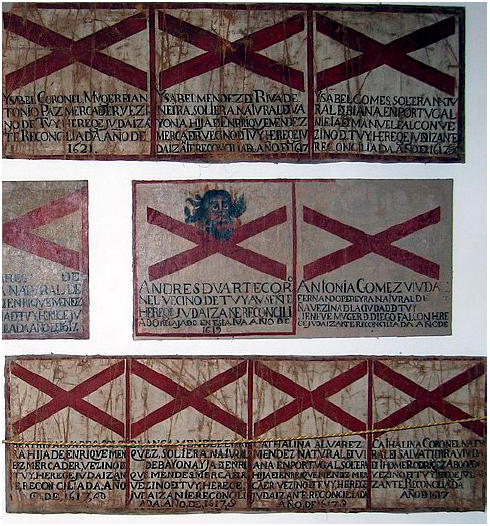 YSABEL CORONEL MVGER DE AN
TONIO PAZ MERCADER VEZI
NO DE TVY HEREGE JVDAIZA
TE RECONCILIADA AÑO DE
1621
YSABEL MENDEZ D RIVADE
NEIRA SOLTERA NATVRAL D VA
YONA HIJA D ENRIQVE MENDEZ
MERCADER VEZINO D TVY HEREGE JV
DAIZATE RECONCILIADA AÑO D 1617
YSABEL GOMES SOLTERA NATV
RAL D BIANA EN PORTVGAL
HIJA D MANVEL FALCON VE
ZINO D TVY HEREGE JVDAIZANTE
RECONCILIADA AÑO D 1617
DE
NATVRAL DE
ENRIQVE MENDEZ
D TVY HEREGE JV
ADA AÑO DE 1617
ANDRES DVARTE COR
NEL VECINO DE TVY AVSENTE
HEREGE JVDAIZANTE RECONCILI
ADO RELAJADO EN ESTATVA AÑO DE
1619
ANTONIA GOMEZ VIVDA D
FERNANDO PEREYRA NATVRAL DE
VEZINA D LA CIVDAD D TVY
MVGER D DIEGO FALCON HERE
GE JVDAIZANTE RECONCILIADA AÑO DE
SOLTE
RA HIJA DE ENRIQVE MEN
DEZ MERCADER VEZINO D
TVY HEREGE JVDAIZANTE
RECONCILIADA AÑO
D DE 1617
QVEZ SOLTERA NATVRAL
DE BAYONA Y JA D ENRI
QVE MENDES MERCADER
VEZINO D TVY HEREGE
JVDAIZANTE RECONCILI
ADA AÑO DE 1617
CATHALINA ALVAREZ
MENDEZ NATVRAL D VI
ANA EN PORTVGAL SOLTER
A HIJA D ENRIQVE MENDEZ MER
CADER VEZINO D TVY HEREGE
JVDAIZANTE RECONCILI
ADA AÑO DE 1617
CATHALINA CORONEL NATV
RAL D SALVATIERRA VIVDA
D ABO
VEZINO D TVY HEREGE JVDAI
ZANTE RECONCILIADA
AÑO D 1617